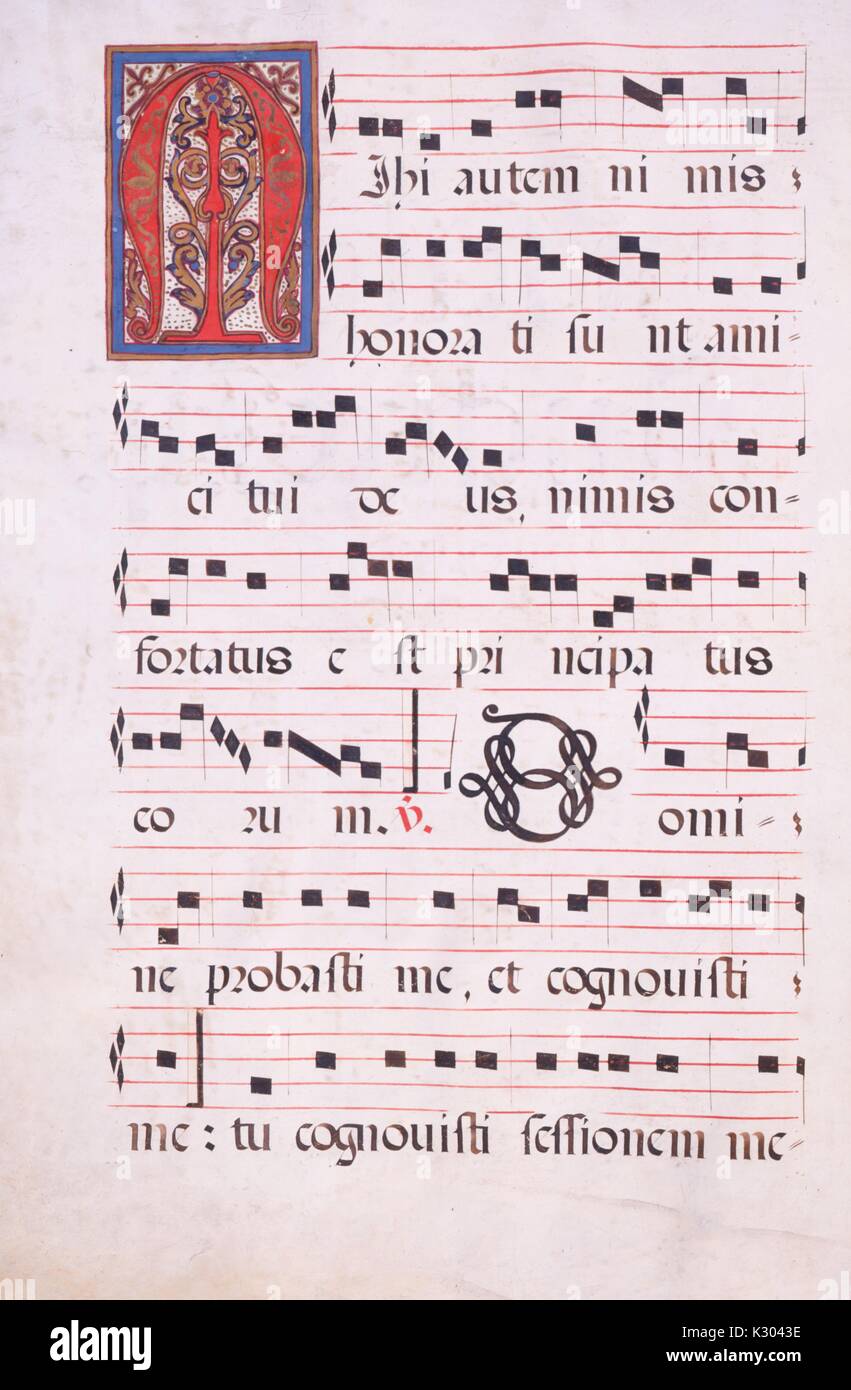 MIhi autem ni mis
honora ti su nt ami-
ci tui de us, nimis con=
fortatus e st pri ncipa tus
co ru m. ℣. Domi=
ne probasti me, et cognouisti
me: tu cognouisti sessionem me=
alamy
Image ID: K3043E
www.alamy.com